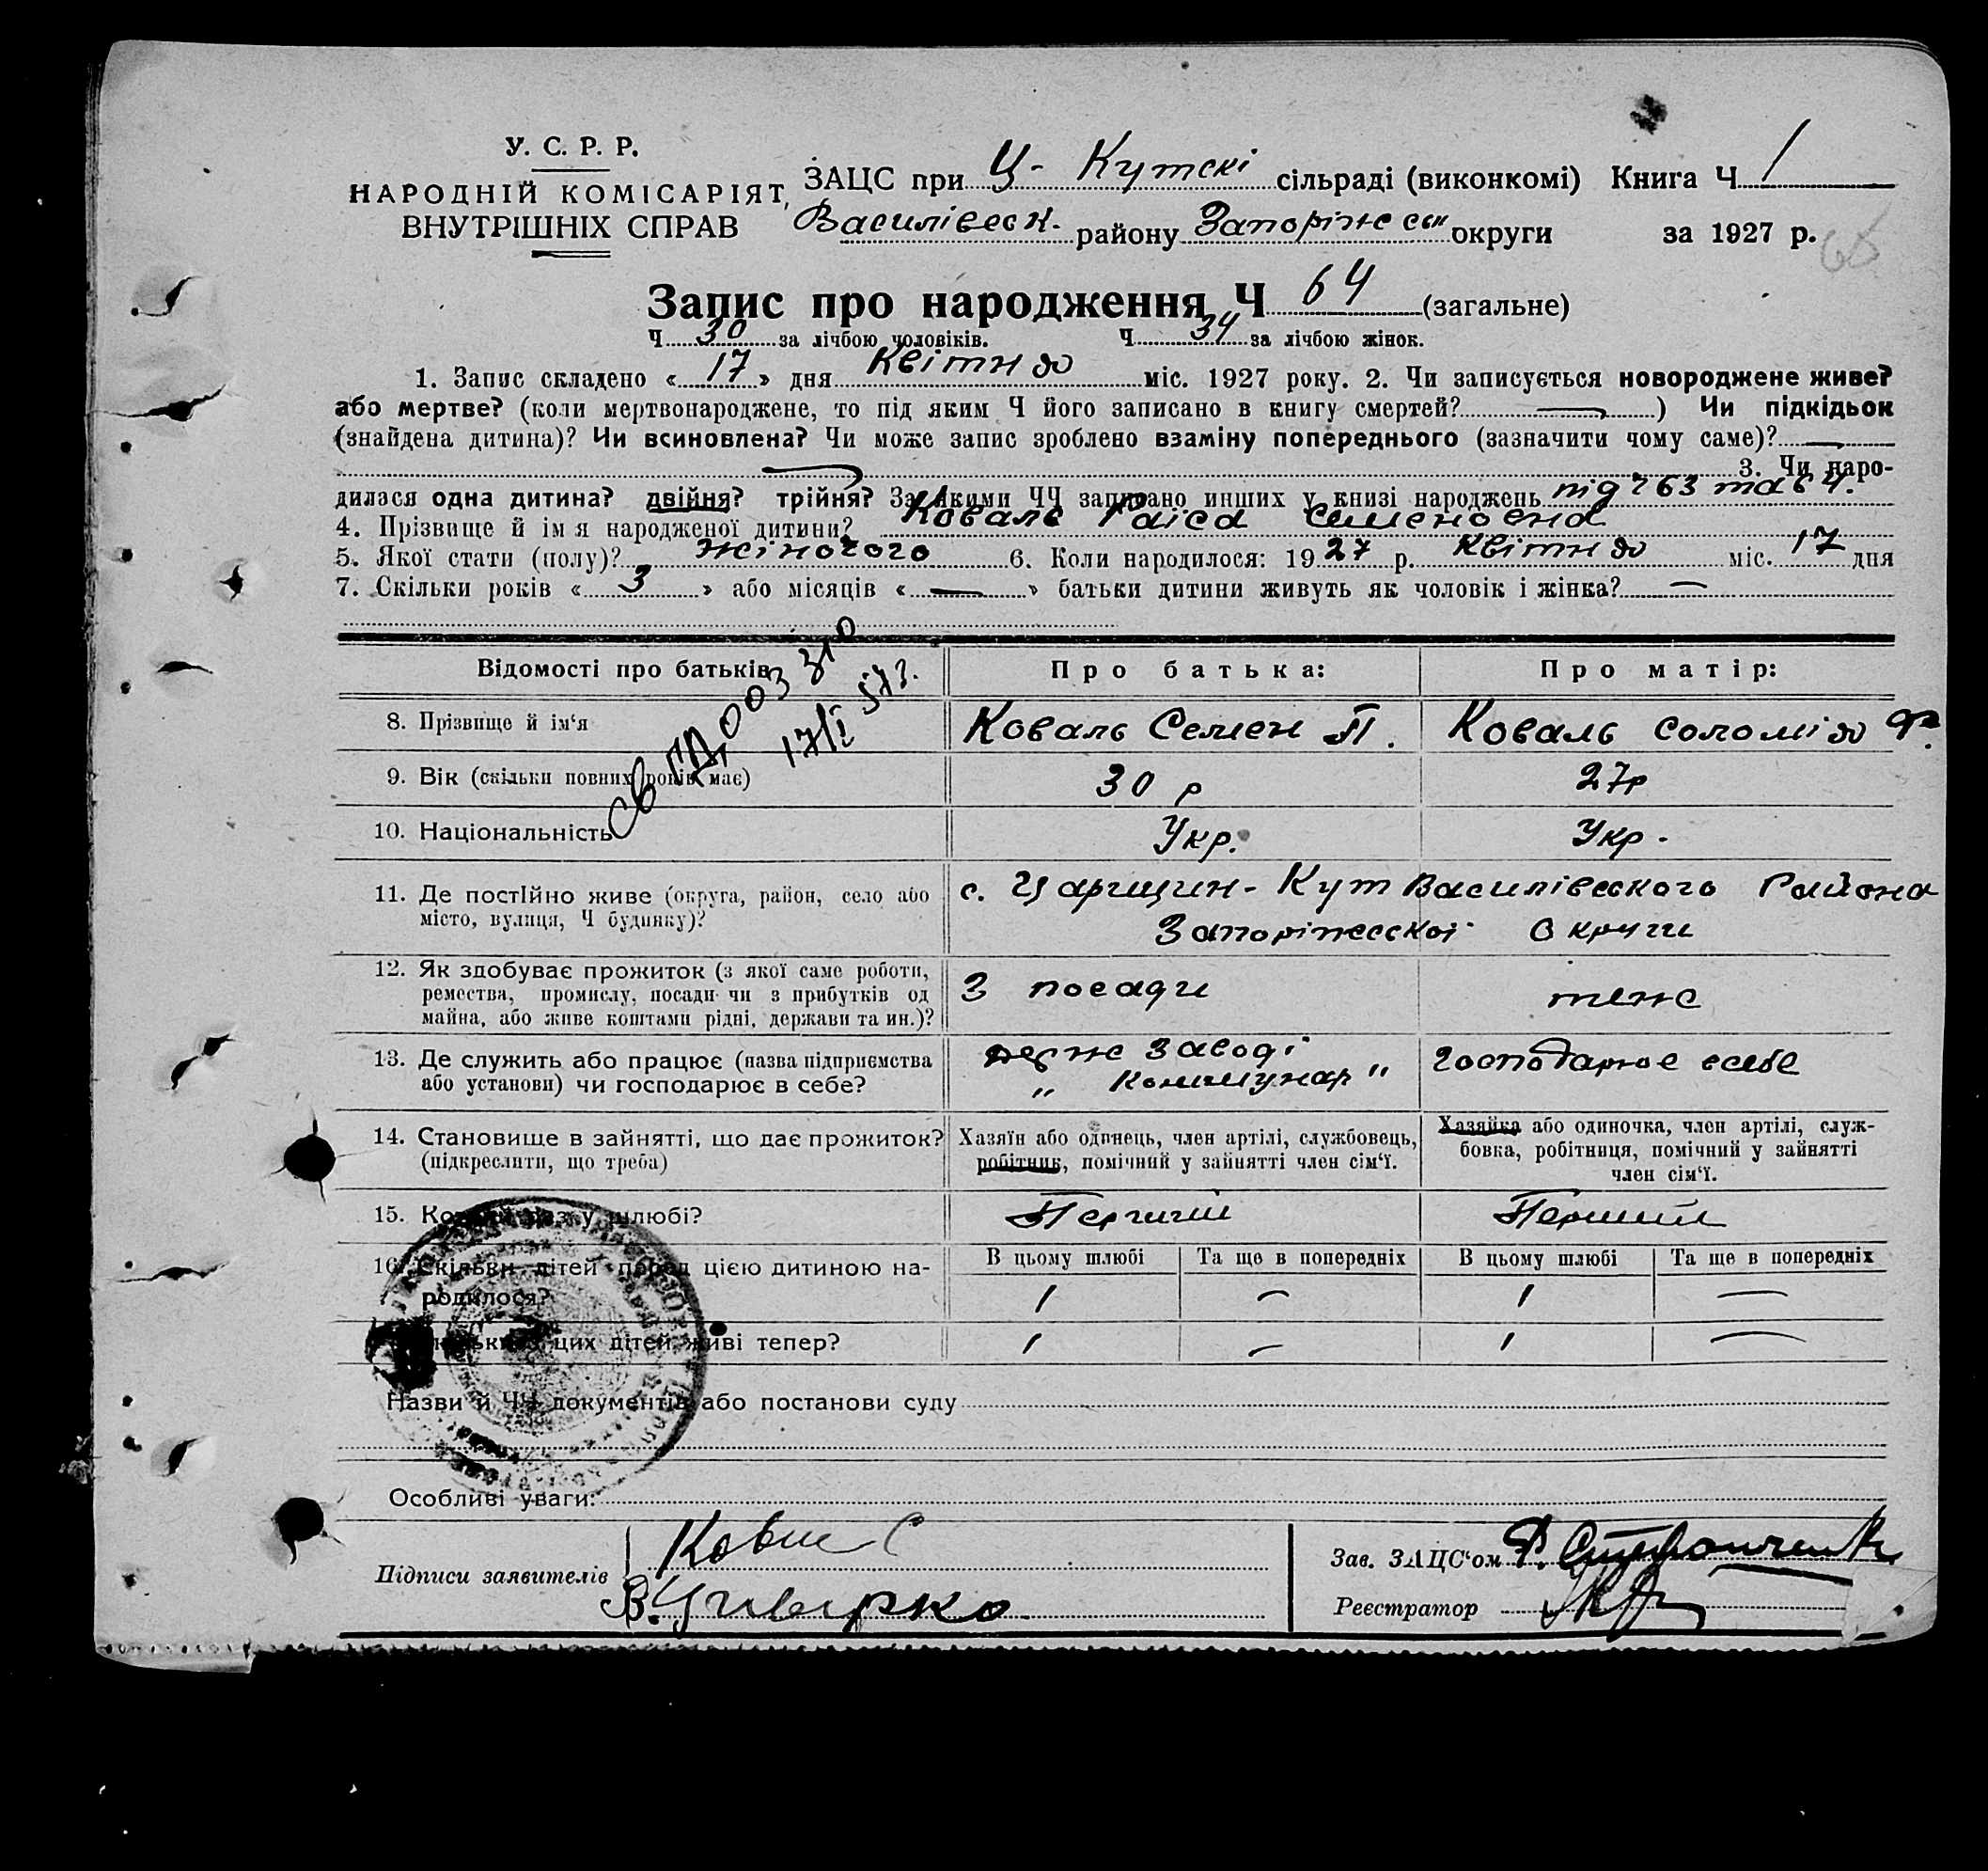 У. С. Р. Р.
НАРОДНІЙ КОМІСАРІЯТ
ВНУТРІШНІХ СПРАВ
ЗАЦС при Ц- Кутскі сільраді (виконкомі) Книга Ч 1
Василівськ. району Запоріжськ округи за 1927 р.
65
Запис про народження Ч 64 (загальне)
Ч 30 за лічбою чоловіків. Ч 34 за лічбою жінок.
1. Запис складено « 17 » дня Квітня міс. 1927 року. 2. Чи записується новороджене живе?
або мертве? (коли мертвонароджене, то під яким Ч його записано в книгу смертей? — ) Чи підкідьок
(знайдена дитина)? Чи всиновлена? Чи може запис зроблено взаміну попереднього (зазначити чому саме)? —
— 3. Чи наро-
дилася одна дитина? двійня? трійня? За якими ЧЧ записано инших у книзі народжень під Ч 63 та 64.
4. Прізвище й ім я народженої дитини? Коваль Раїса Семеновна
5. Якої стати (полу)? жіночого 6. Коли народилося: 1927 р. Квітня міс. 17 дня
7. Скільки років « 3 » або місяців « — » батьки дитини живуть як чоловік і жінка? —
Відомості про батьків Про батька: Про матір:
8. Прізвище й ім‘я Коваль Семен П. Коваль Соломія Ф.
9. Вік (скільки повних років має) 30 р 27р
10. Національність Укр. Укр.
11. Де постійно живе (округа, район, село або
місто, вулиця, Ч будинку)?
с. Царицин-Кут Василівського Района
Запоріжсской Округи
12. Як здобуває прожиток (з якої саме роботи,
ремества, промислу, посади чи з прибутків од
майна, або живе коштами рідні, держави та ин.)?
З посади теж
13. Де служить або працює (назва підприємства
або установи) чи господарює в себе?
держ Заводі
„ Коммунар "
господарює в себе
14. Становище в зайнятті, що дає прожиток?
(підкреслити, що треба)
Хазяїн або одинець, член артілі, службовець,
робітник, помічний у зайнятті член сім‘ї.
Хазяйка або одиночка, член артілі, служ-
бовка, робітниця, помічний у зайнятті
член сім‘ї.
15. Котрий раз у шлюбі? Перший Перший
16. Скільки дітей перед цією дитиною на-
родилося?
В цьому шлюбі Та ще в попередніх В цьому шлюбі Та ще в попередніх
1 — 1 —
цих дітей живі тепер? 1 — 1 —
Назви й ЧЧ документів або постанови суду
Особливі уваги:
Підписи заявителів
Зав. ЗАЦС‘ом
Реєстратор